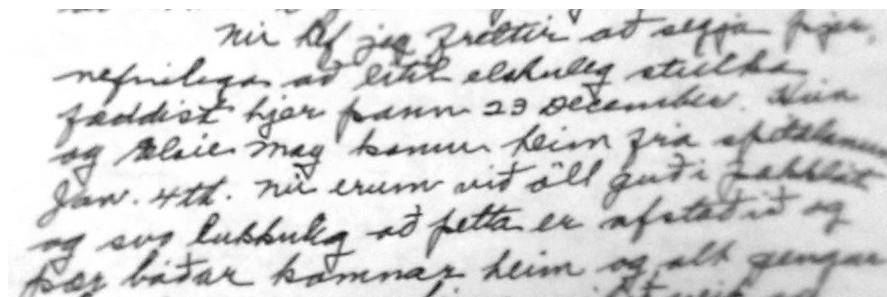 Nú hef jeg frettir að segja þjer,
nefnilega að litil elskuleg stulka
fæddist hjer þann 23 December. Hún
og Elsie May komu heim frá spítalanum
Jan. 4th. Nú erum við öll guði þakklát
og svo lukkuleg að þetta er afstaðið og
þær báðar komnar heim og alt gengur